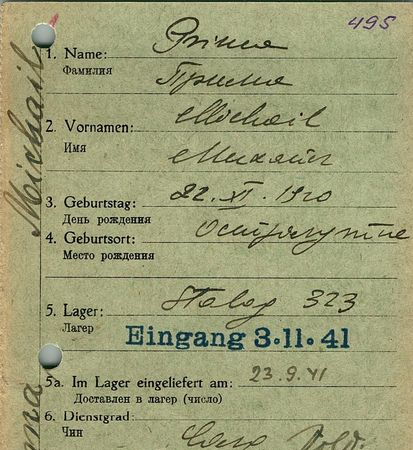 495
1. Name:
Фамилия
2. Vornamen: Michail
Имя Михаил
3. Geburtstag: 22. XI. 1920
День рождения
4. Geburtsort:
Место рождения
5. Lager: Stalag 323
Лагер
Eingang 3.11.41
5a. Im Lager eingeliefert am: 23.9.41
Доставлен в лагер (число)
6. Dienstgrad:
Чин
Michail